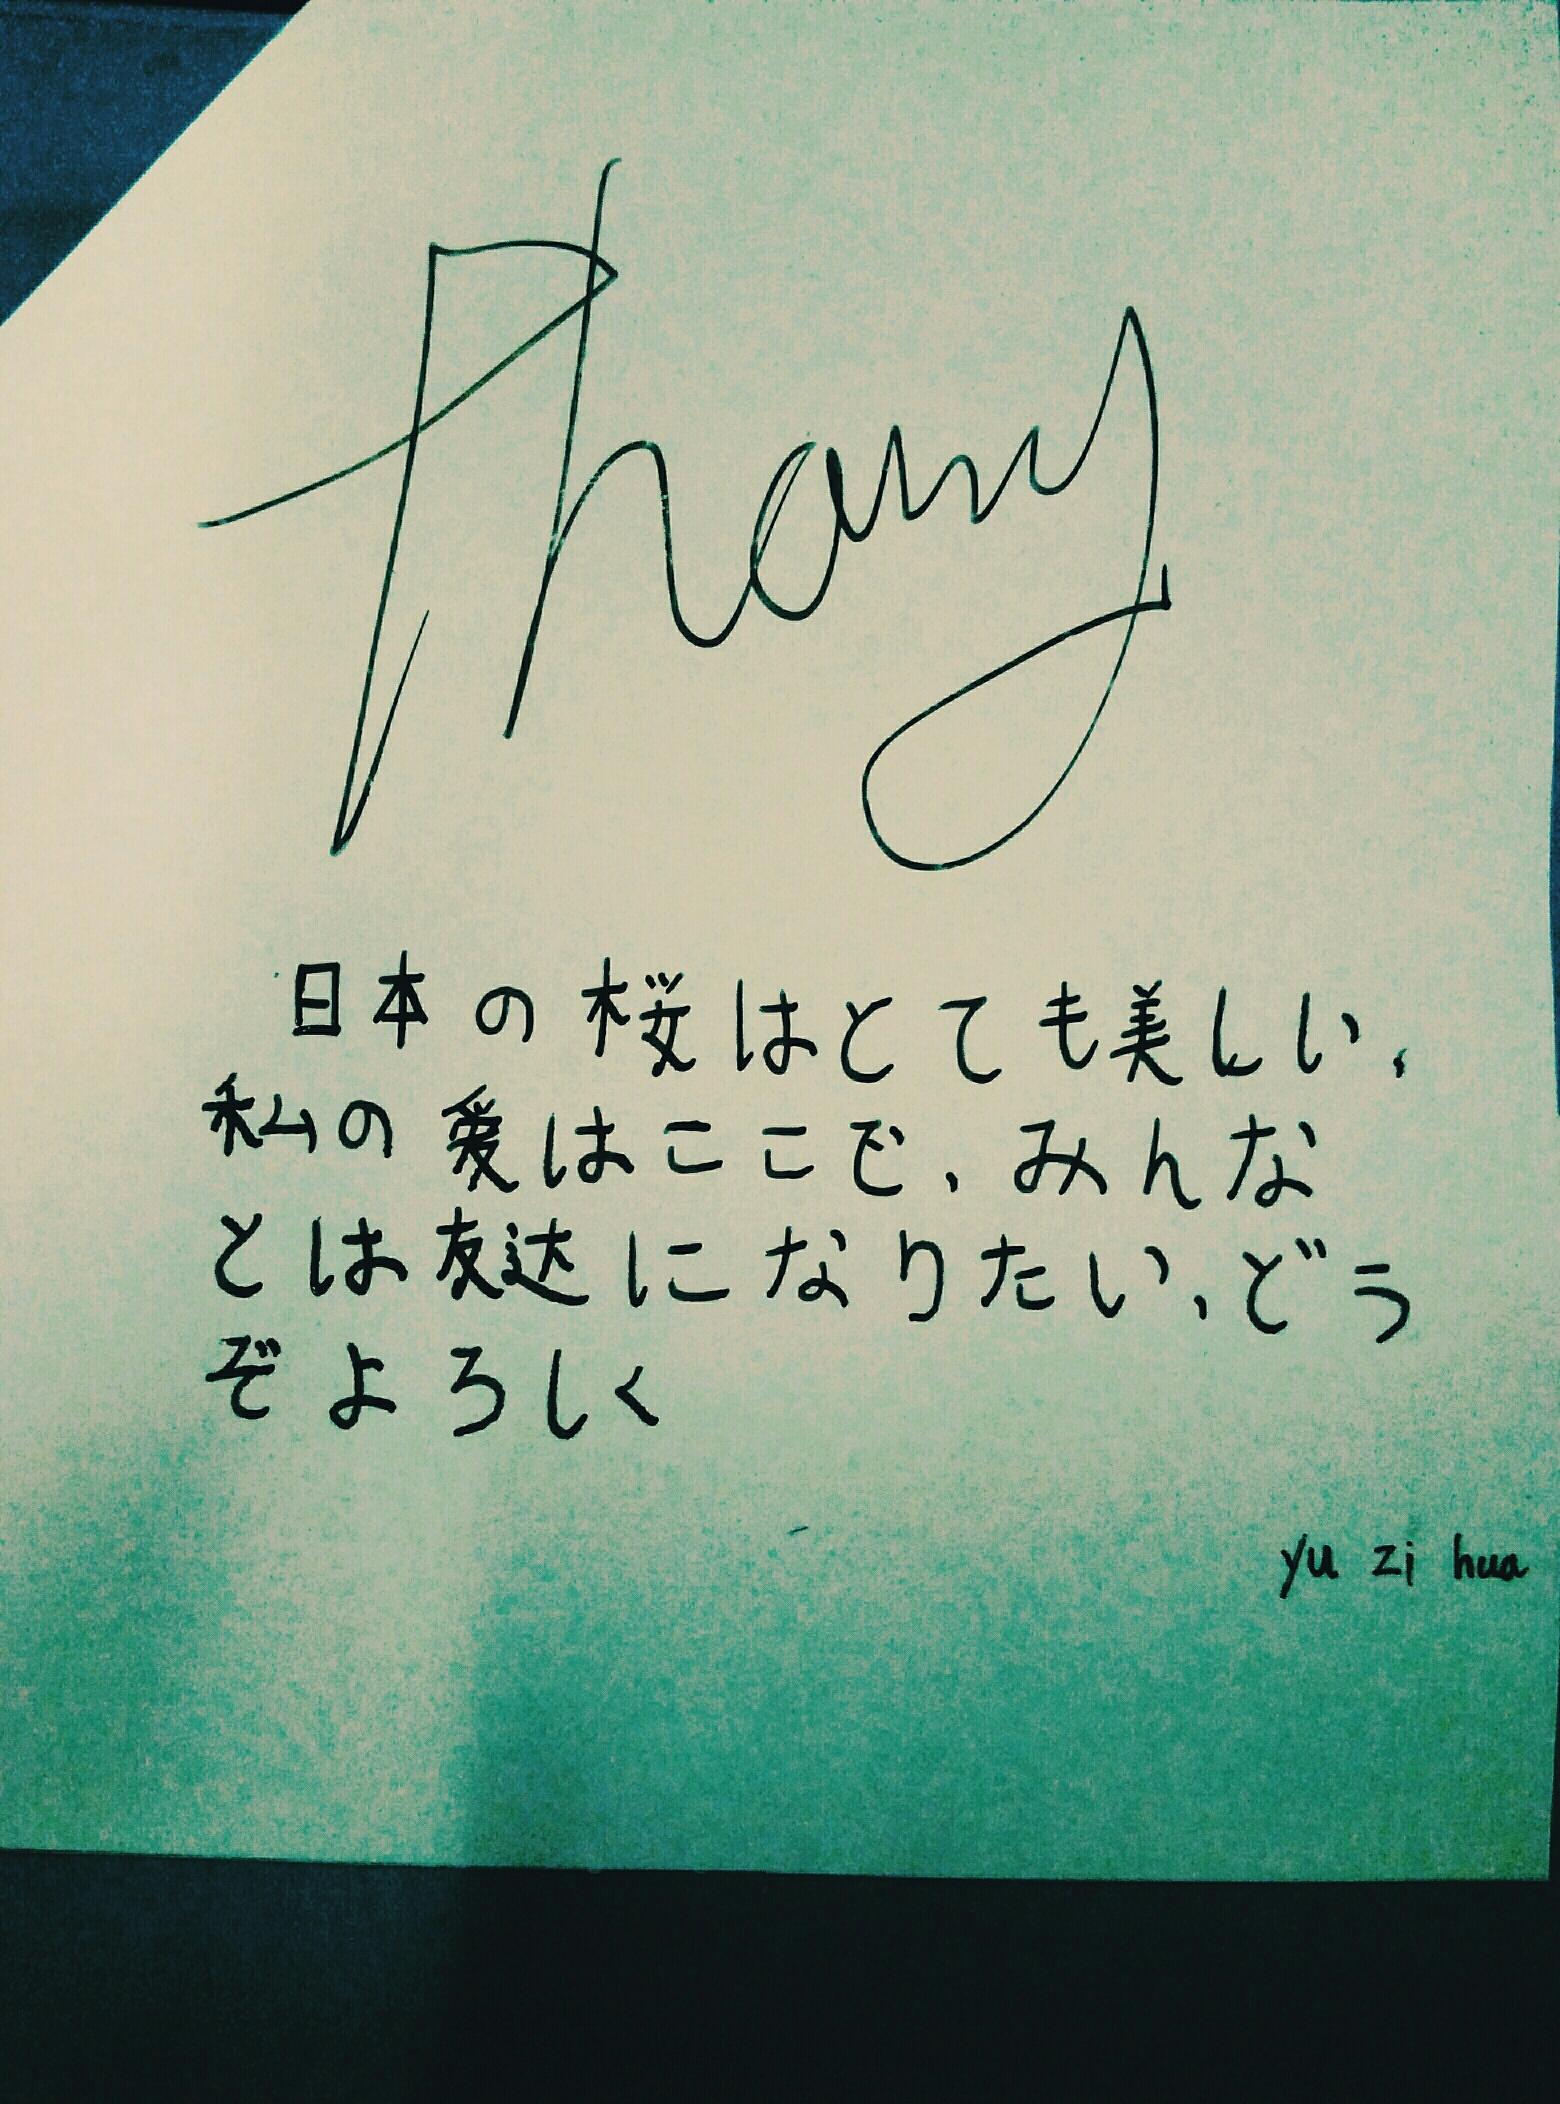 日本の桜はとても美しい、
私の爱はここで、みんな
とは友达になりたい、どう
ぞよろしく
yu zi hua